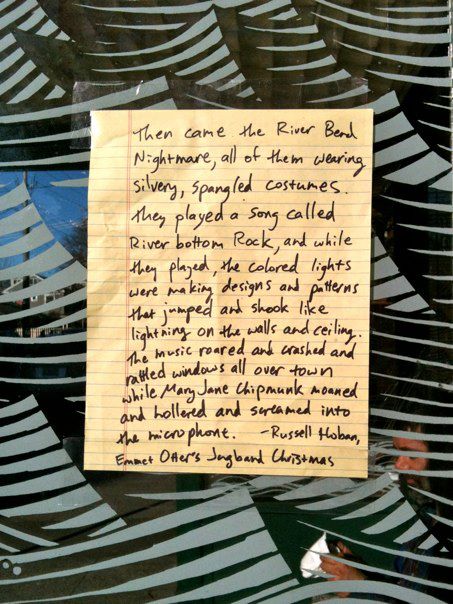 Then came the River Bend
Nightmare, all of them wearing
silvery, spangled costumes.
They played a song called
River bottom Rock, and while
they played, the colored lights
were making designs and patterns
that jumped and shook like
lightning on the walls and ceiling.
The music roared and crashed and
rattled windows all over town
while Mary Jane Chipmunk moaned
and hollered and screamed into
the microphone. -Russell Hoban,
Emmet Otter's Jugband Christmas